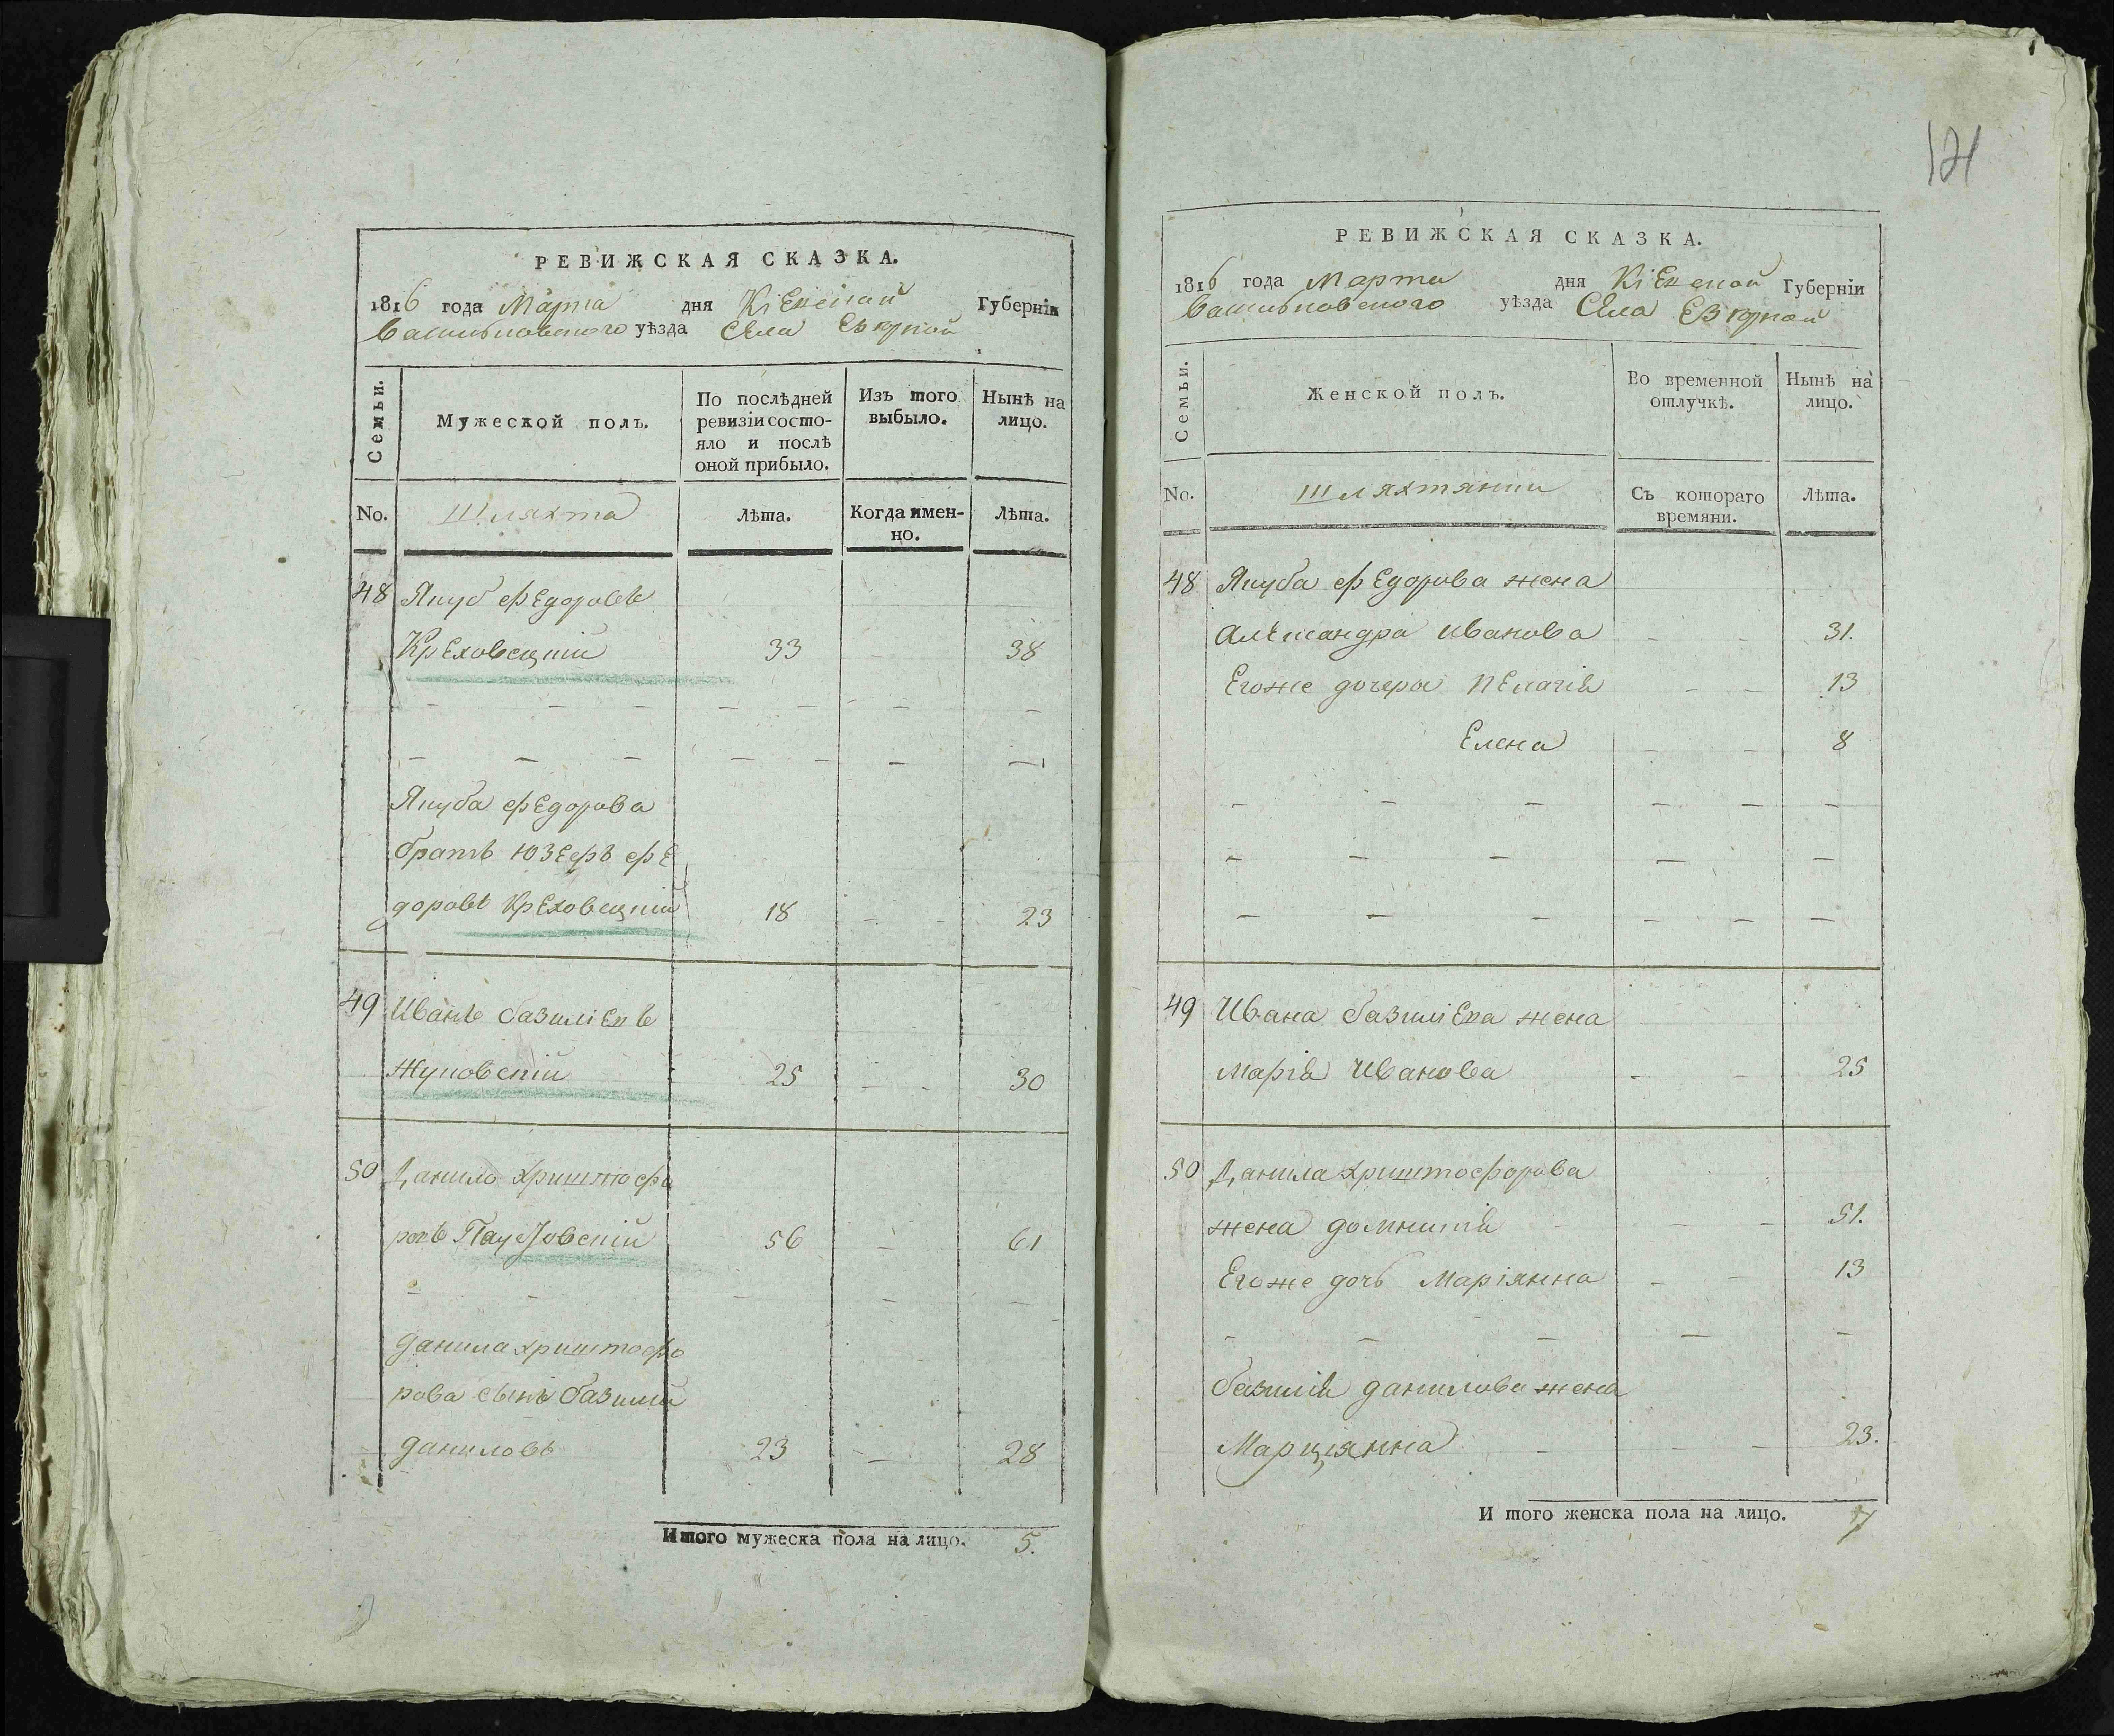 РЕВИЖСКАЯ СКАЗКА.
1816 года Марта дня Кіевской Губерніи
Васильковского уѣзда Села Езерной
Семьи.
Мужеской полъ.
По послѣдней ревизіи состо-
яло и послѣ
оной прибыло.
Изъ того
выбыло.
Нынѣ на
лицо.
No.
Шляхта
Лѣта.
Когда имен-
но.
Лѣта.
48 Якуб Федоровъ
Креховецкій 33 38
Якуба Федорова
братъ Юзефъ Фе
доровъ Креховецкій 18 23
49 Иванъ Базиліевъ
Жуковскій 25 30
50 Данило Криштофо
ровъ 56 61
Данила Криштофо
рова сынъ Базилій
Даниловъ 23 28
Итого мужеска пола на лицо. 5.
121
РЕВИЖСКАЯ СКАЗКА.
1816 года Марта дня Кіевской Губерніи
Васильковского уѣзда Села Езерной
Семьи.
Женской полъ.
Во временной
отлучкѣ.
Нынѣ на
лицо.
No.
Шляхтянки
Съ котораго
времяни.
Лѣта.
48 Якуба Федорова жена
Александра Иванова 31.
Егоже дочери Пелагія 13
Елена 8
49 Ивана Базиліева жена
Марія Иванова 25
50 Данила Криштофорова
жена Домникія 51.
Егоже дочь Маріянна 13
Базилія Данилова жена
Марціянна 23.
И того женска пола на лицо. 7